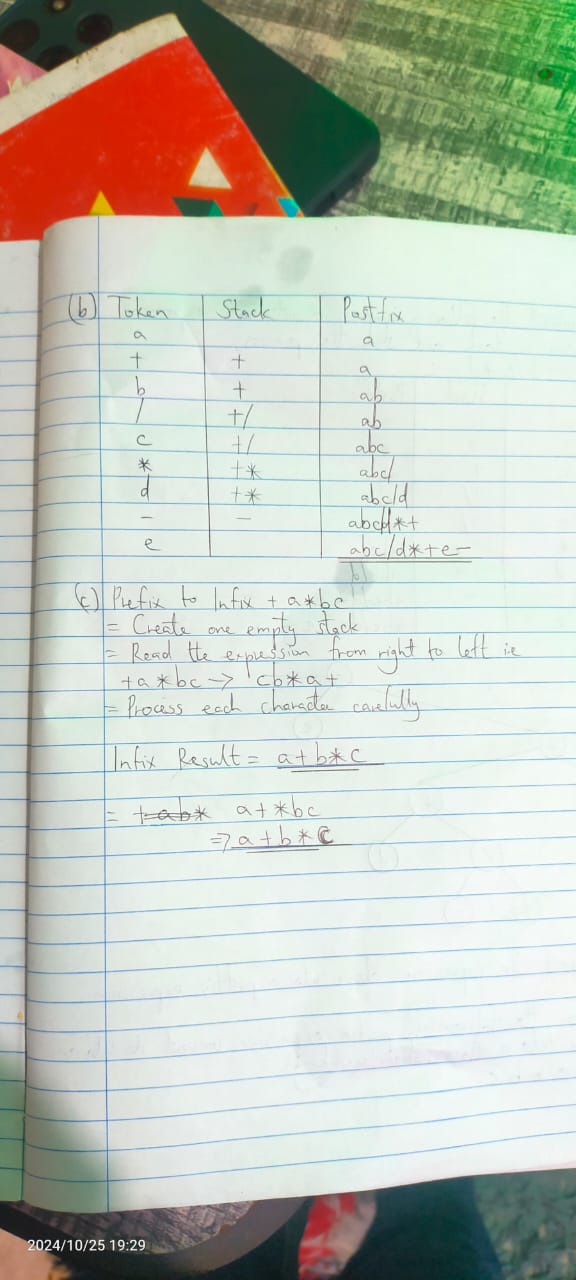 (b) Token Stack Postfix
a a
+ + a
b + ab
/ +/ ab
c +/ abc
* +* abc/
d +* abc/d
- - abc/d*+
e abc/d*+e-
(c) Prefix to Infix + a*bc
= Create one empty stack
= Read the expression from right to left i.e
+a*bc -> cb*a+
= Process each character carefully
Infix Result = a+b*c
= +ab* a+*bc
=> a+b*c
2024/10/25 19:29